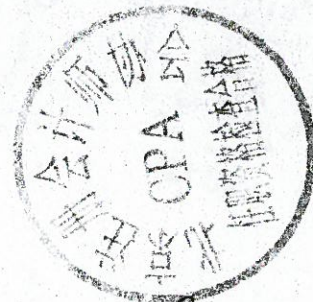 北京注册会计师协会
CPA
任职资格检查合格